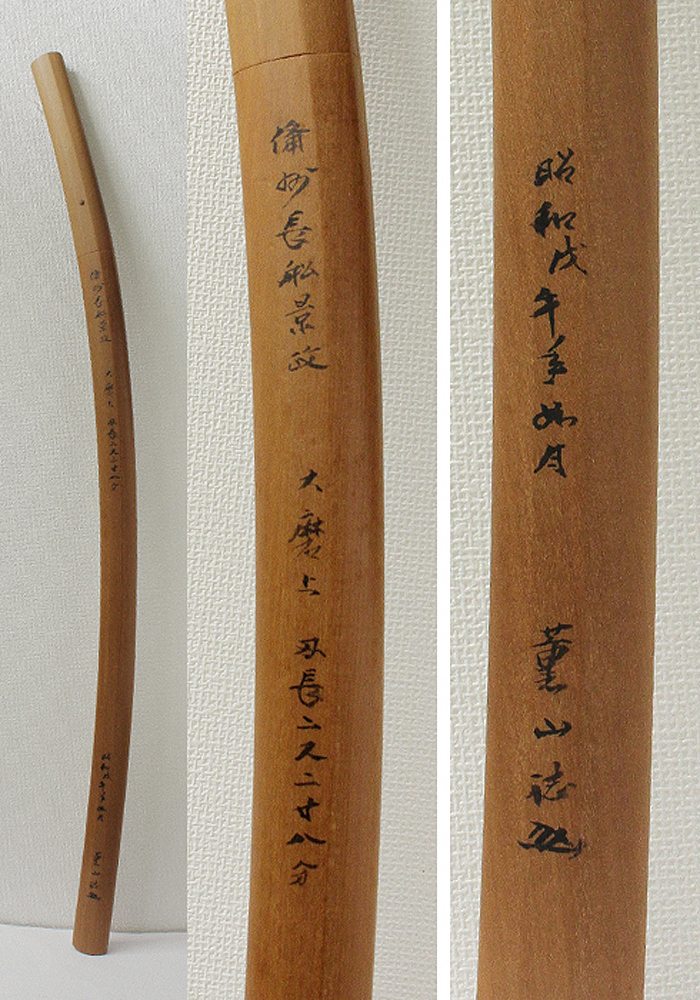 備州長船景政　大磨上　刃長二尺二寸八分
昭和戊午年如月　薫山誌